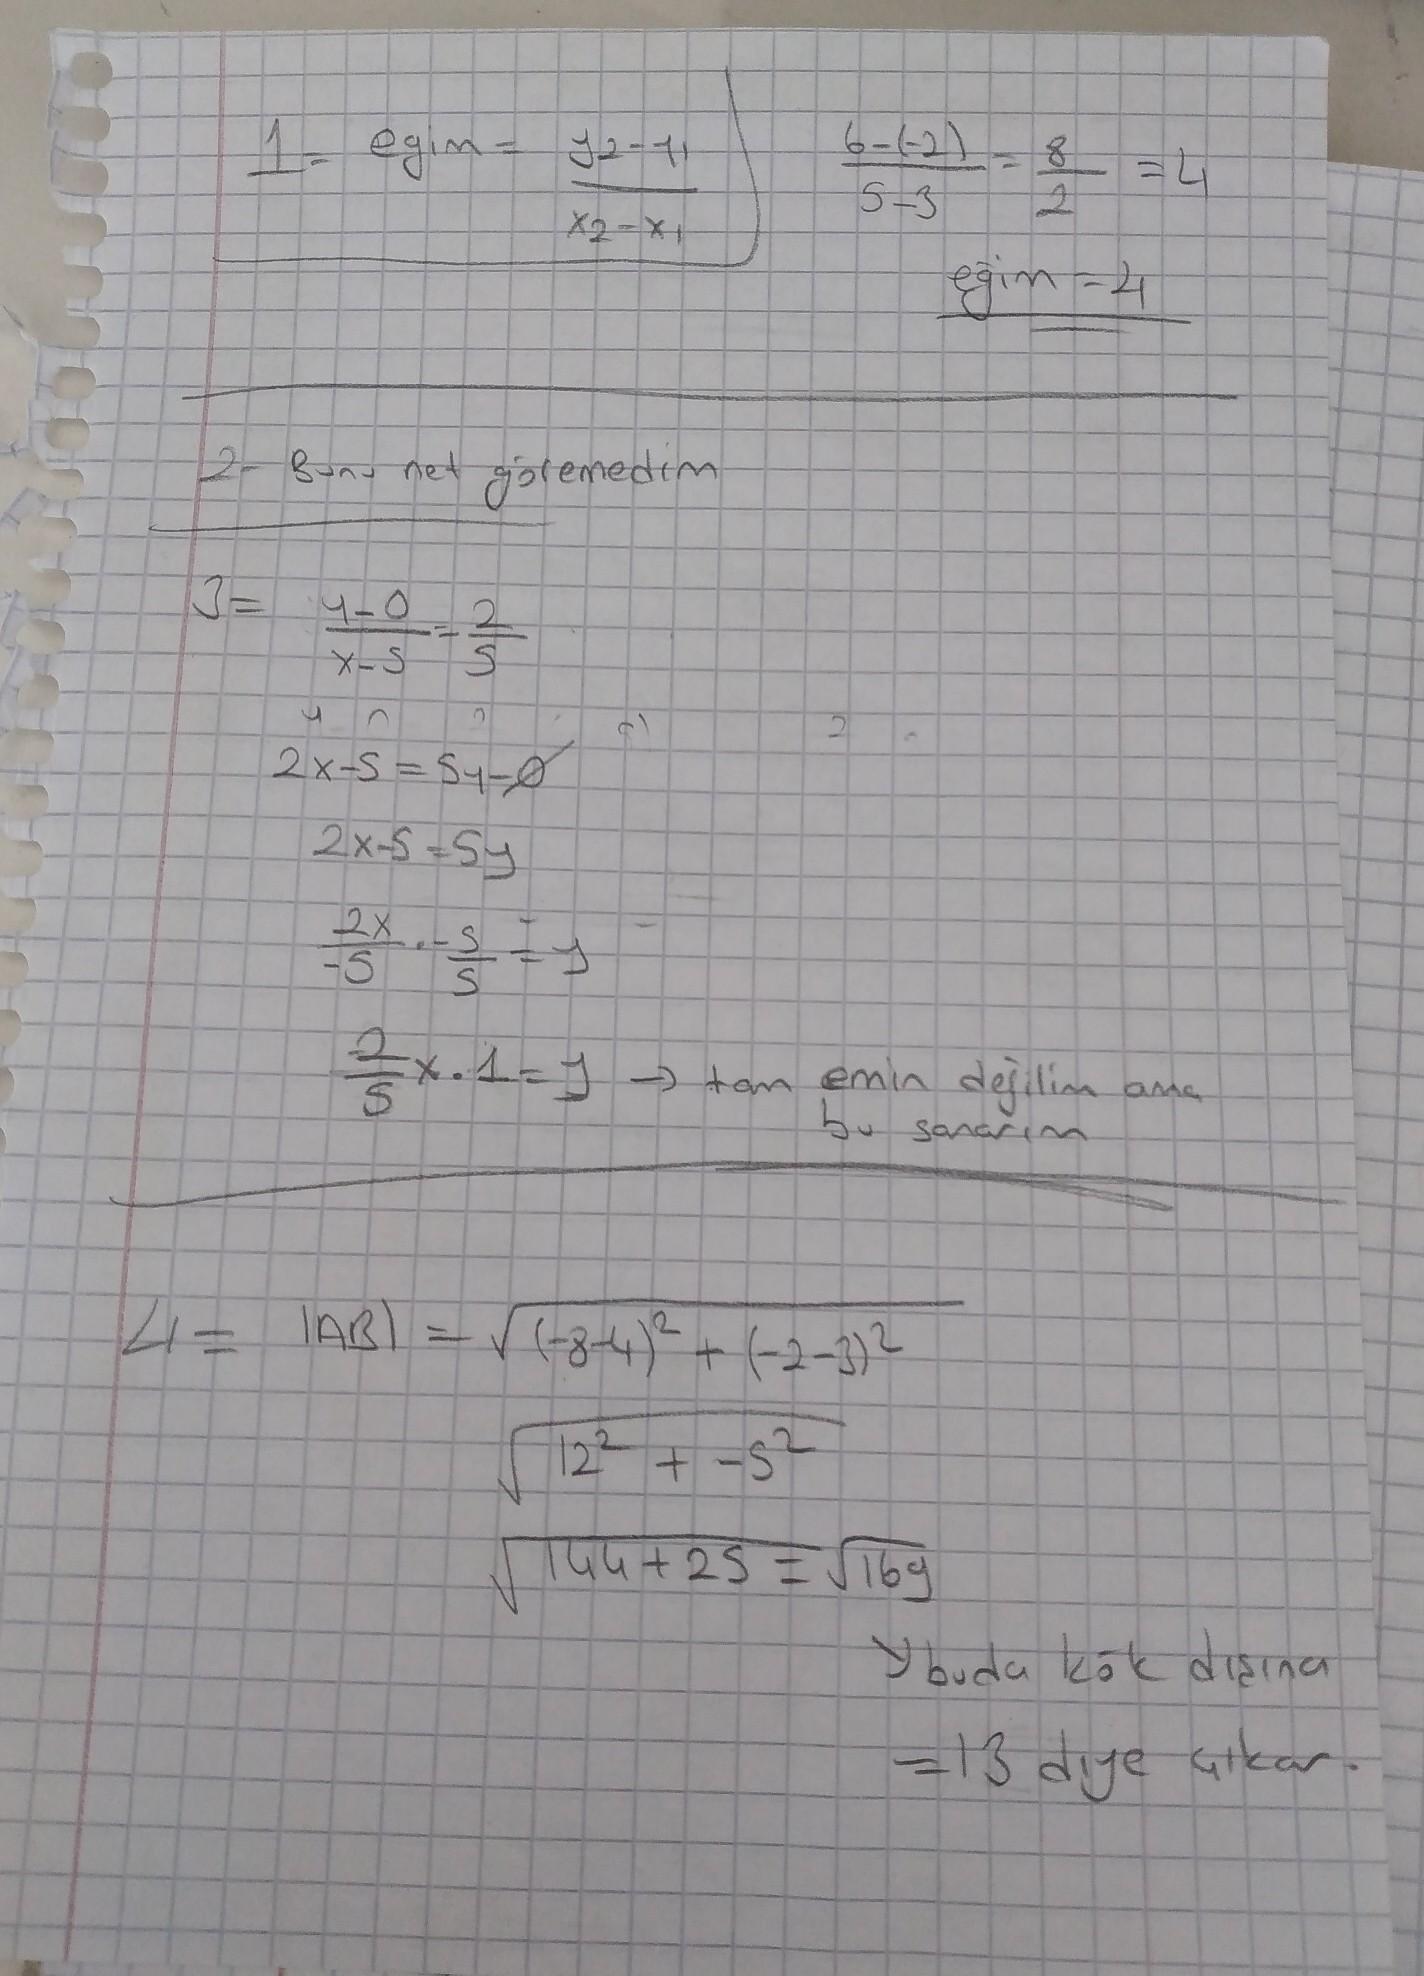 1- egim = y2-y1 / x2-x1
6-(-2) / 5-3 = 8/2 = 4
eğim = 4
2- Bunu net göremedim
3= y-0 / x-5 = 2/5
2x-5 = 5y-0
2x-5 = 5y
2x/-5 . -5/5 = y
2/5 x . 1 = y → tam emin değilim ama
bu sanarım
4= |AB| = √(-8-4)² + (-2-3)²
√12² + -5²
√144+25 = √169
buda kök dışına
=13 diye çıkar.